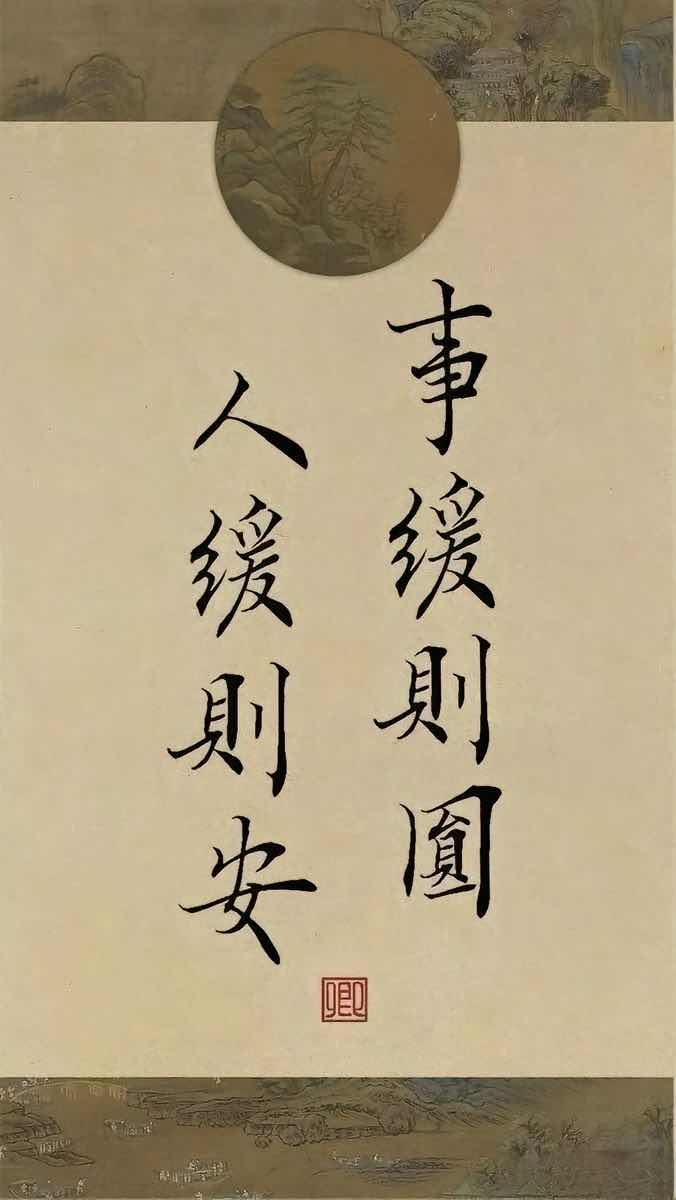 事緩則圓
人緩則安
卿